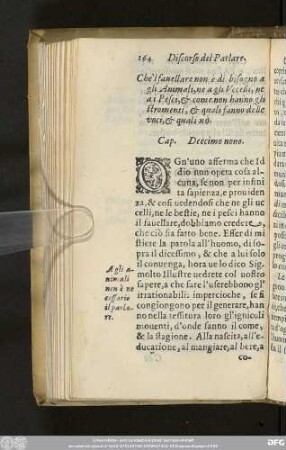 164 Discorso del Parlare.
Che'l fauellare non è di bisogno a
gli Animali, ne a gli Vccelli, ne
a i Pesci, & come non hanno gli
stromenti, & quali fanno delle
voci, & quali nò.
Cap. Decimo nono.
OGn'uno afferma che Id
dio non opera cosa al-
cuna, se non per infini
ta sapienza, e prouiden
za, & cosi uedendosi che ne gli uc
celli, ne le bestie, ne i pesci hanno
il fauellare, dobbiamo credere,
che ciò sia fatto bene. Esser di mi
stiere la parola all'huomo, di so-
pra il dicessimo, & che a lui solo
il conuenga, hora ue lo dico Sig.
molto Illustre uedrete col uostro
sapere, a che fare l'userebbono gl'
irrationabili: impercioche, se si
congiongono per il generare, han
no nella tessitura loro gl'igniculi
mouenti, d'onde sanno il come,
& la stagione. Alla nascita, all'e-
ducatione, al mangiare, al bere, a
A gli a-
nimali
non è ne
cessario
il parla-
re.
co-